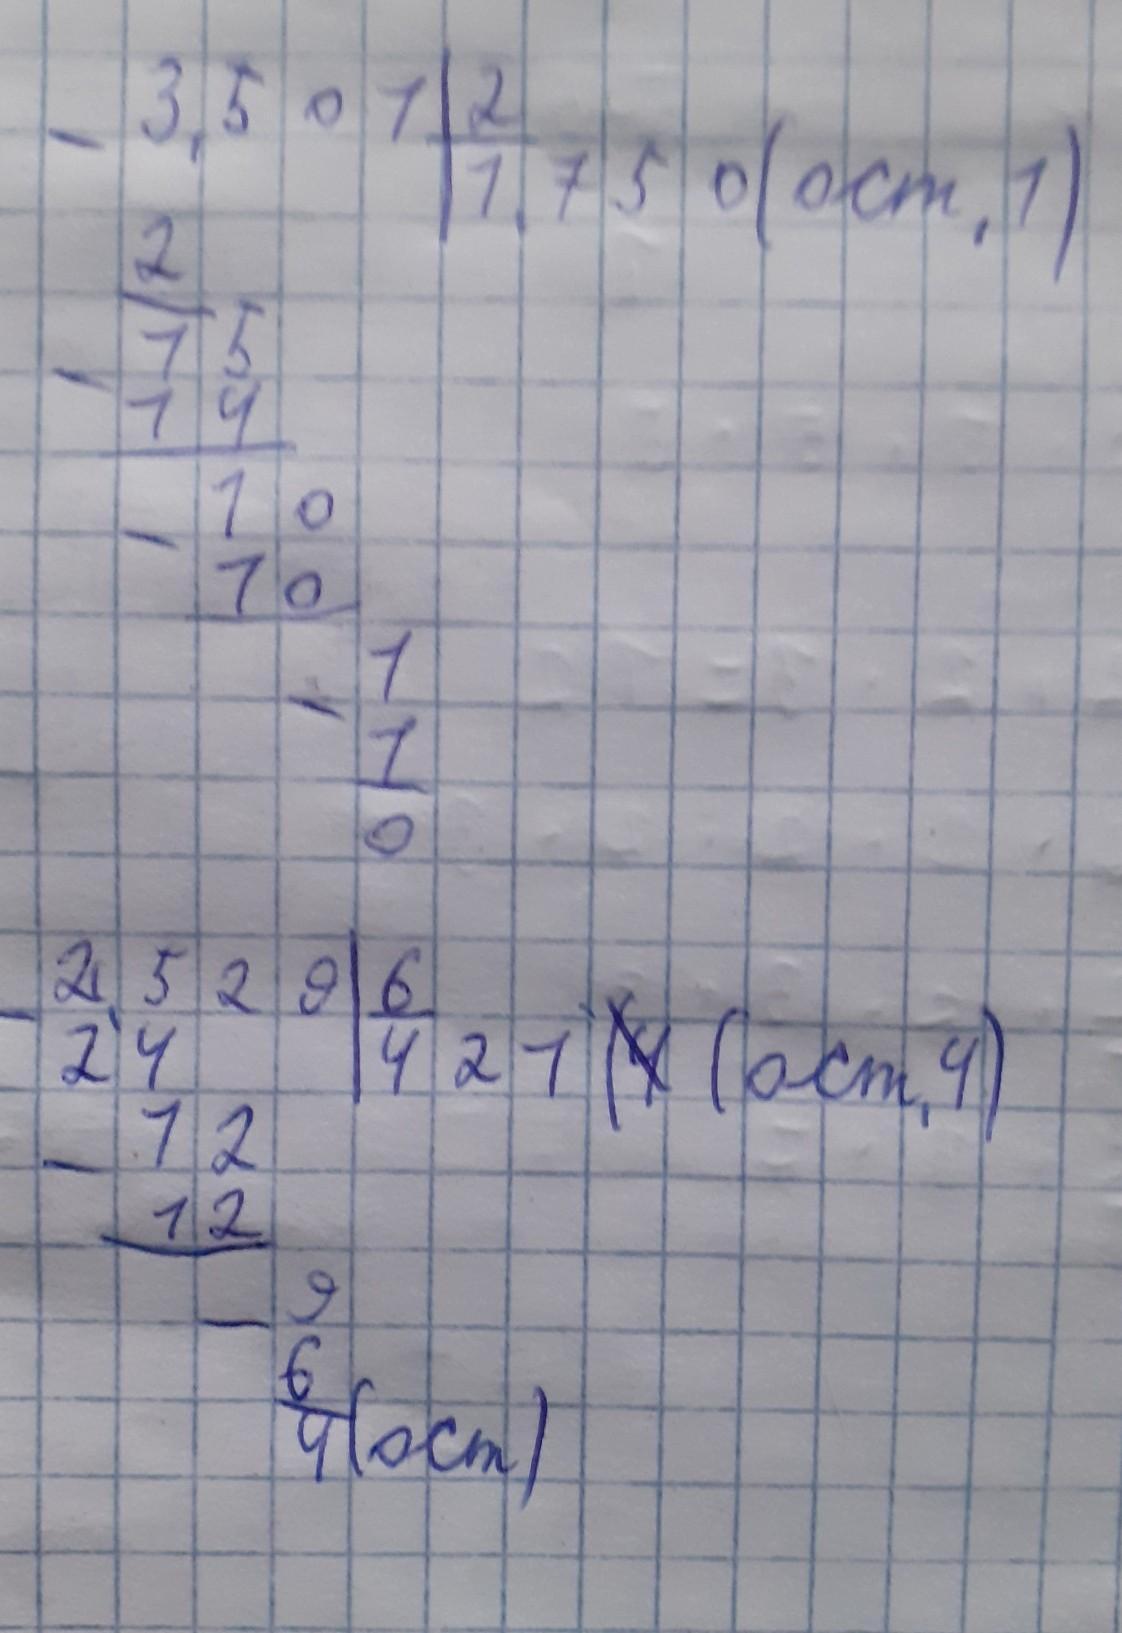 - 3,501|2
1,750(ост,1)
2
- 15
14
- 10
10
- 1
1
0
- 2,529|6
24 421 (ост,4)
- 12
12
- 9
6
4(ост)